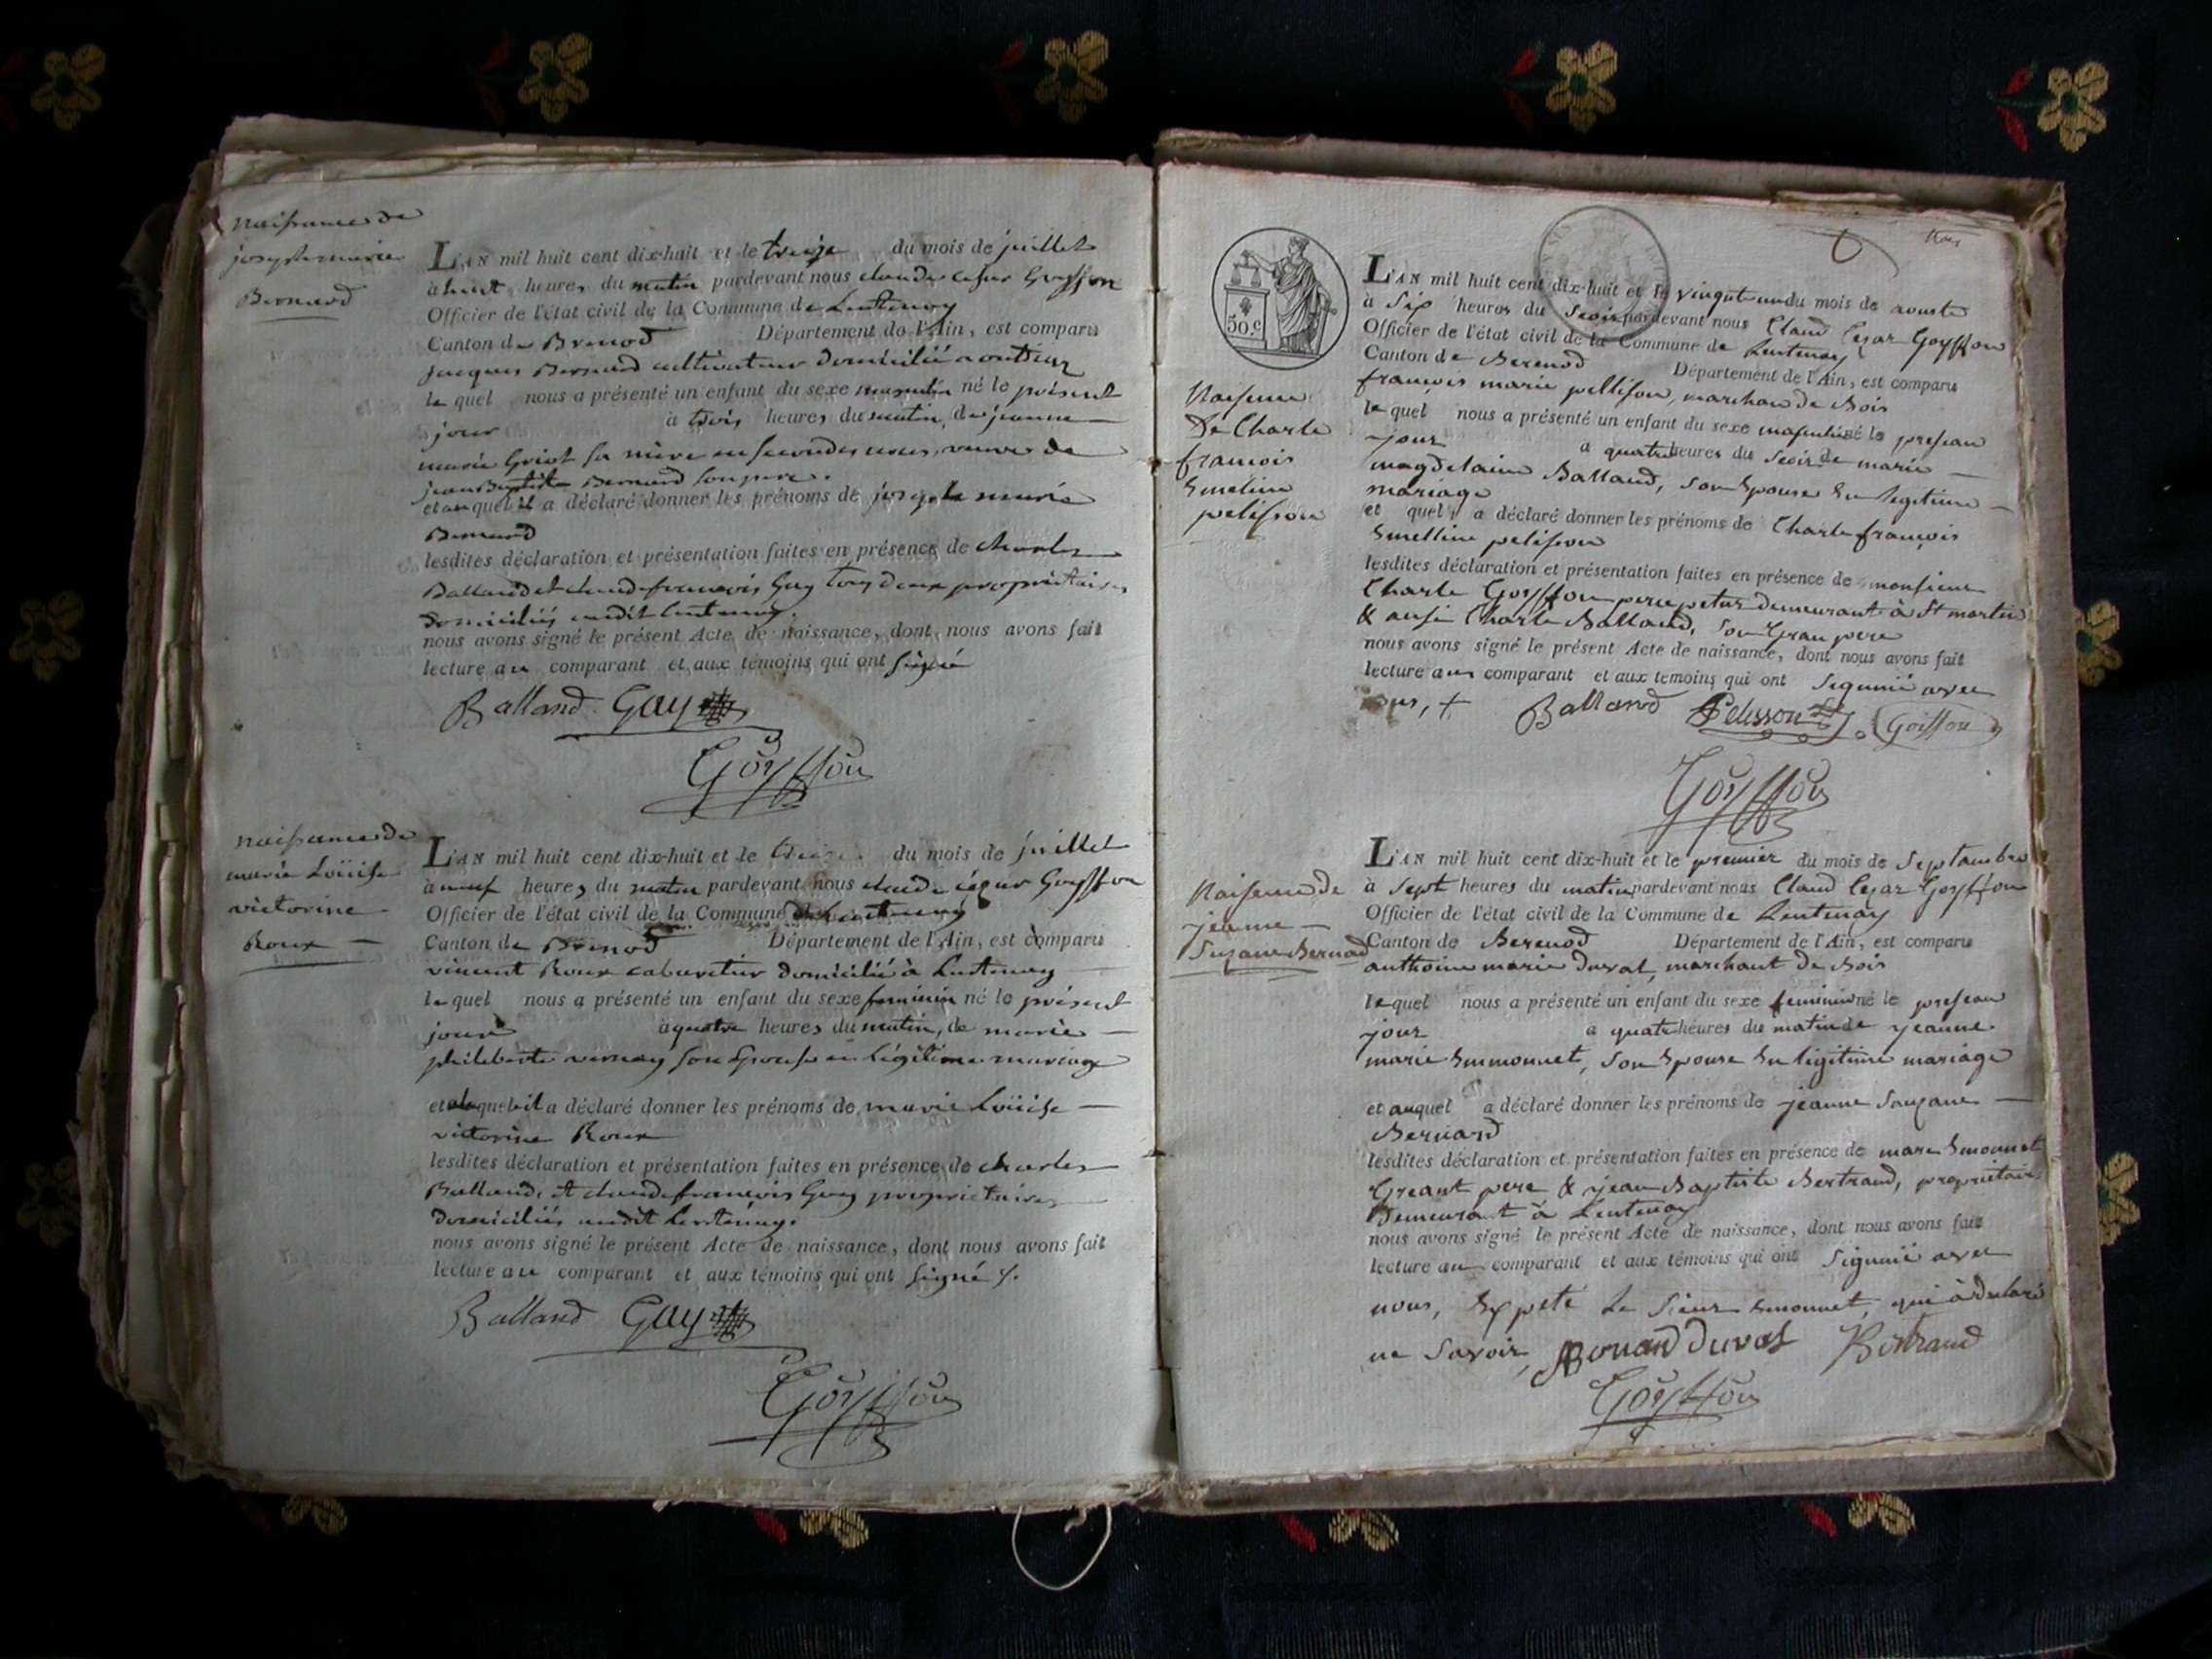 naissance de
joseph marie
Bernard
L'AN mil huit cent dix-huit et le treize du mois de juillet
à huit heures du matin pardevant nous claude cesar Goyffon
Officier de l'état civil de la Commune de Lentenay
Canton de Brenod Département de l'Ain, est comparu
jacques Bernard cultivateur domicilié a outriaz
lequel nous a présenté un enfant du sexe masculin né le présent
jour à trois heures du matin, de jeanne
marie Griot sa mère en secondes noces, veuve de
jean Baptiste Bernard son pere.
et auquel il a déclaré donner les prénoms de joseph marie
Bernard
lesdites déclaration et présentation faites en présence de charles
Balland et claude françois Gay tous deux propriétaires
domiciliés audit Lentenay.
nous avons signé le présent Acte de naissance, dont nous avons fait
lecture au comparant et aux témoins qui ont signé
Balland Gay
Goyffon
naissance de
marie Loüise
victorine
Roux
L'AN mil huit cent dix-huit et le treize du mois de juillet
à neuf heures du matin pardevant nous claude cézar Goyffon
Officier de l'état civil de la Commune de Lentenay
Canton de Brenod Département de l'Ain, est comparu
vincent Roux cabaretier domicilié à Lentenay
lequel nous a présenté un enfant du sexe feminin né le présent
jour à quatre heures du matin, de marie
philiberte vernay son Epouse en légitime mariage
et auquel il a déclaré donner les prénoms de marie Loüise
victorine Roux
lesdites déclaration et présentation faites en présence de charles
Balland, et claude françois Gay propriétaires
domiciliés audit Lentenay.
nous avons signé le présent Acte de naissance, dont nous avons fait
lecture au comparant et aux témoins qui ont signé
Balland Gay
Goyffon
50.c
Naisance
De Charle
françois
Emeline
pelisson
L'AN mil huit cent dix-huit et le vingt un du mois de aouste
à Six heures du Seoir pardevant nous Claud Cezar Goyffon
Officier de l'état civil de la Commune de Lentenay
Canton de Berenod Département de l'Ain, est comparu
françois marie pellison, marchan de Bois
lequel nous a présenté un enfant du sexe masculin né le presean
jour a quatre heures du Seoir de marie
magdelaine Balland, son Epouse En legitime
mariage
et quel a déclaré donner les prénoms de Charle françois
Emelline pelisson
lesdites déclaration et présentation faites en présence de monsieur
Charle Goyffon demeurant à St martin
& ausi Charle Balland, son Gran pere
nous avons signé le présent Acte de naissance, dont nous avons fait
lecture aux comparant et aux temoins qui ont Signnié avec
nous, + Balland Pelisson Goiffon
Goyffon
Naisance de
jeanne
Suzane Bernad
L'AN mil huit cent dix-huit et le premier du mois de Septambre
à Sept heures du matin pardevant nous Claud Cezar Goyffon
Officier de l'état civil de la Commune de Lentenay
Canton de Berenod Département de l'Ain, est comparu
anthoine marie Duval, marchant de Bois
lequel nous a présenté un enfant du sexe feminin né le presean
jour a quatre heures du matin de jeanne
marie Emmonnet, son Epouse En legitime mariage
et auquel a déclaré donner les prénoms de jeanne Sauzane
Bernard
lesdites déclaration et présentation faites en présence de marc Emonnet
Greant pere & jean Baptiste Bertrand, proprietaire
Demeurant à Lentenay
nous avons signé le présent Acte de naissance, dont nous avons fait
lecture au comparant et aux témoins qui ont Signnié avec
nous, Expeté Le Sieur Emonnet, qui à declaré
ne Savoir, Duval Bertrand
Goyffon